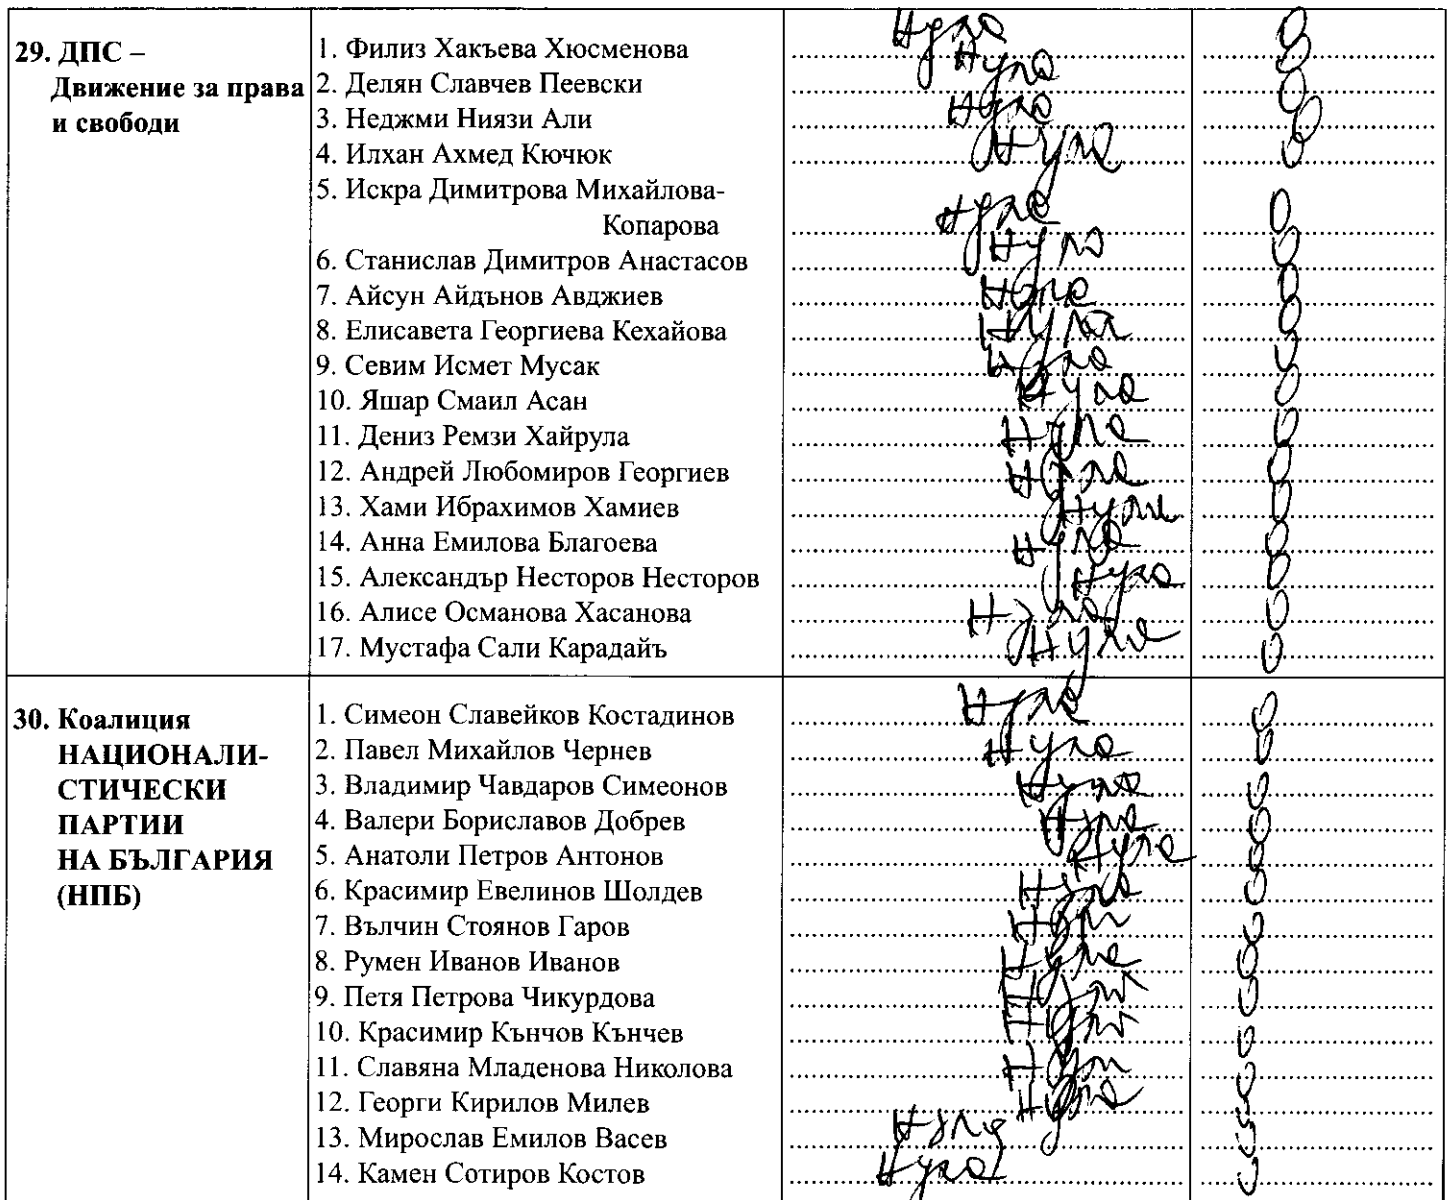 29. ДПС –
Движение за права
и свободи
1. Филиз Хакъева Хюсменова Нула 0
2. Делян Славчев Пеевски Нула 0
3. Неджми Ниязи Али Нула 0
4. Илхан Ахмед Кючюк Нула 0
5. Искра Димитрова Михайлова-
Копарова Нула 0
6. Станислав Димитров Анастасов Нула 0
7. Айсун Айдънов Авджиев Нула 0
8. Елисавета Георгиева Кехайова Нула 0
9. Севим Исмет Мусак Нула 0
10. Яшар Смаил Асан Нула 0
11. Дениз Ремзи Хайрула Нула 0
12. Андрей Любомиров Георгиев Нула 0
13. Хами Ибрахимов Хамиев Нула 0
14. Анна Емилова Благоева Нула 0
15. Александър Несторов Несторов Нула 0
16. Алисе Османова Хасанова Нула 0
17. Мустафа Сали Карадайъ Нула 0
30. Коалиция
НАЦИОНАЛИ-
СТИЧЕСКИ
ПАРТИИ
НА БЪЛГАРИЯ
(НПБ)
1. Симеон Славейков Костадинов Нула 0
2. Павел Михайлов Чернев Нула 0
3. Владимир Чавдаров Симеонов Нула 0
4. Валери Бориславов Добрев Нула 0
5. Анатоли Петров Антонов Нула 0
6. Красимир Евелинов Шолдев Нула 0
7. Вълчин Стоянов Гаров Нула 0
8. Румен Иванов Иванов Нула 0
9. Петя Петрова Чикурдова Нула 0
10. Красимир Кънчов Кънчев Нула 0
11. Славяна Младенова Николова Нула 0
12. Георги Кирилов Милев Нула 0
13. Мирослав Емилов Васев Нула 0
14. Камен Сотиров Костов Нула 0